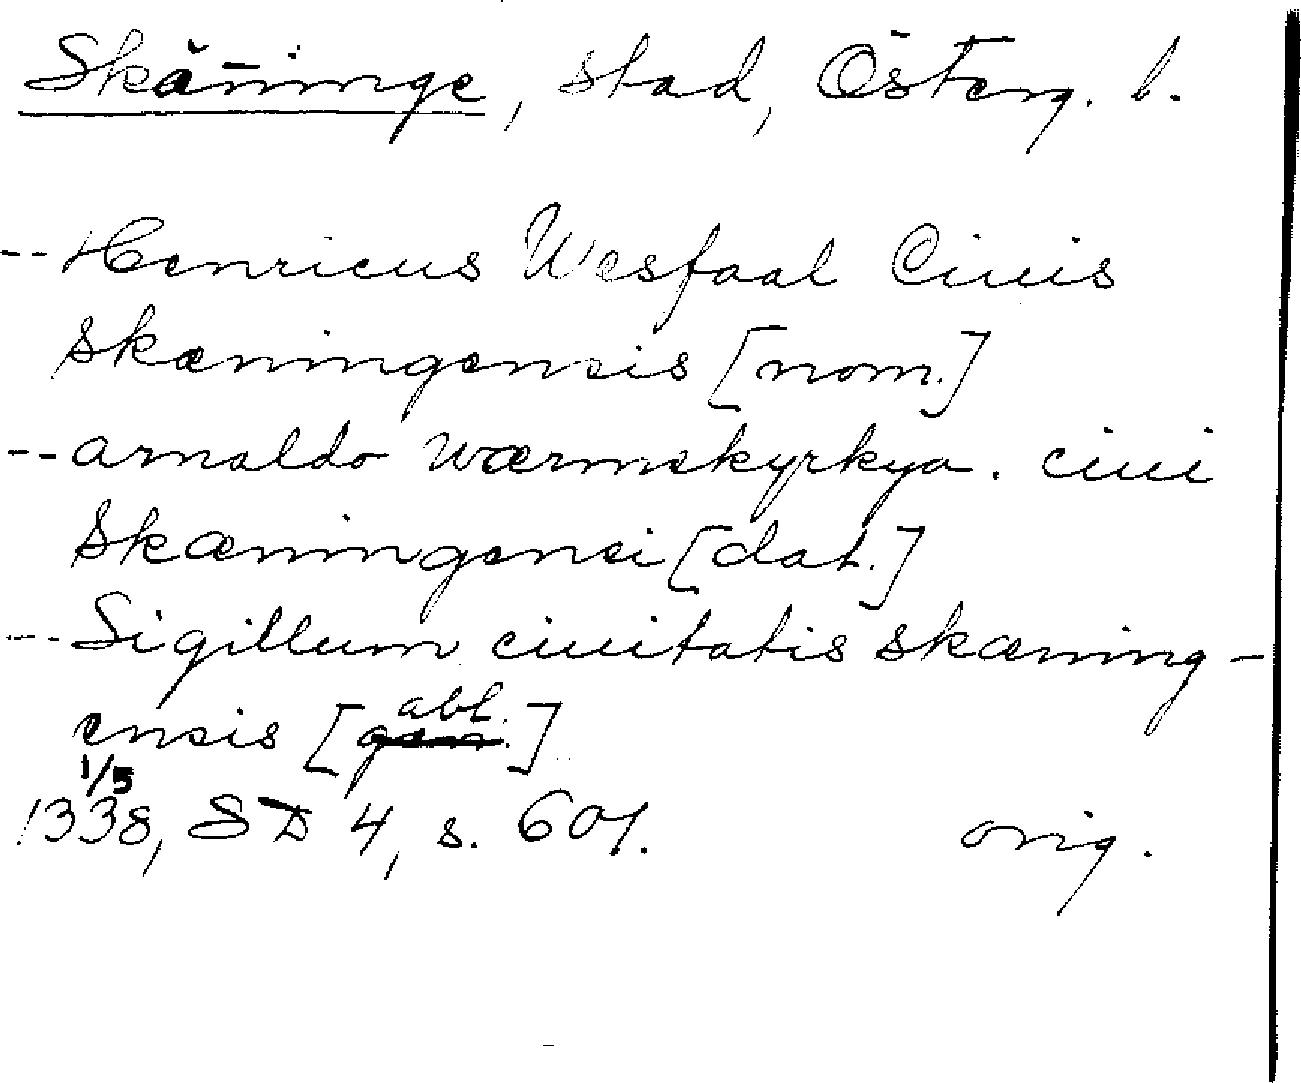 Skänninge, stad, Österg. l.
-- Henricus Wesfaal Ciuis
skæningensis [nom.]
-- arnaldo wærmskyrkya. ciui
skæningensi [dat.]
--- Sigillum ciuitatis skæning-
ensis [gen. abl.]
1/5
1338, SD 4, s. 601. orig.